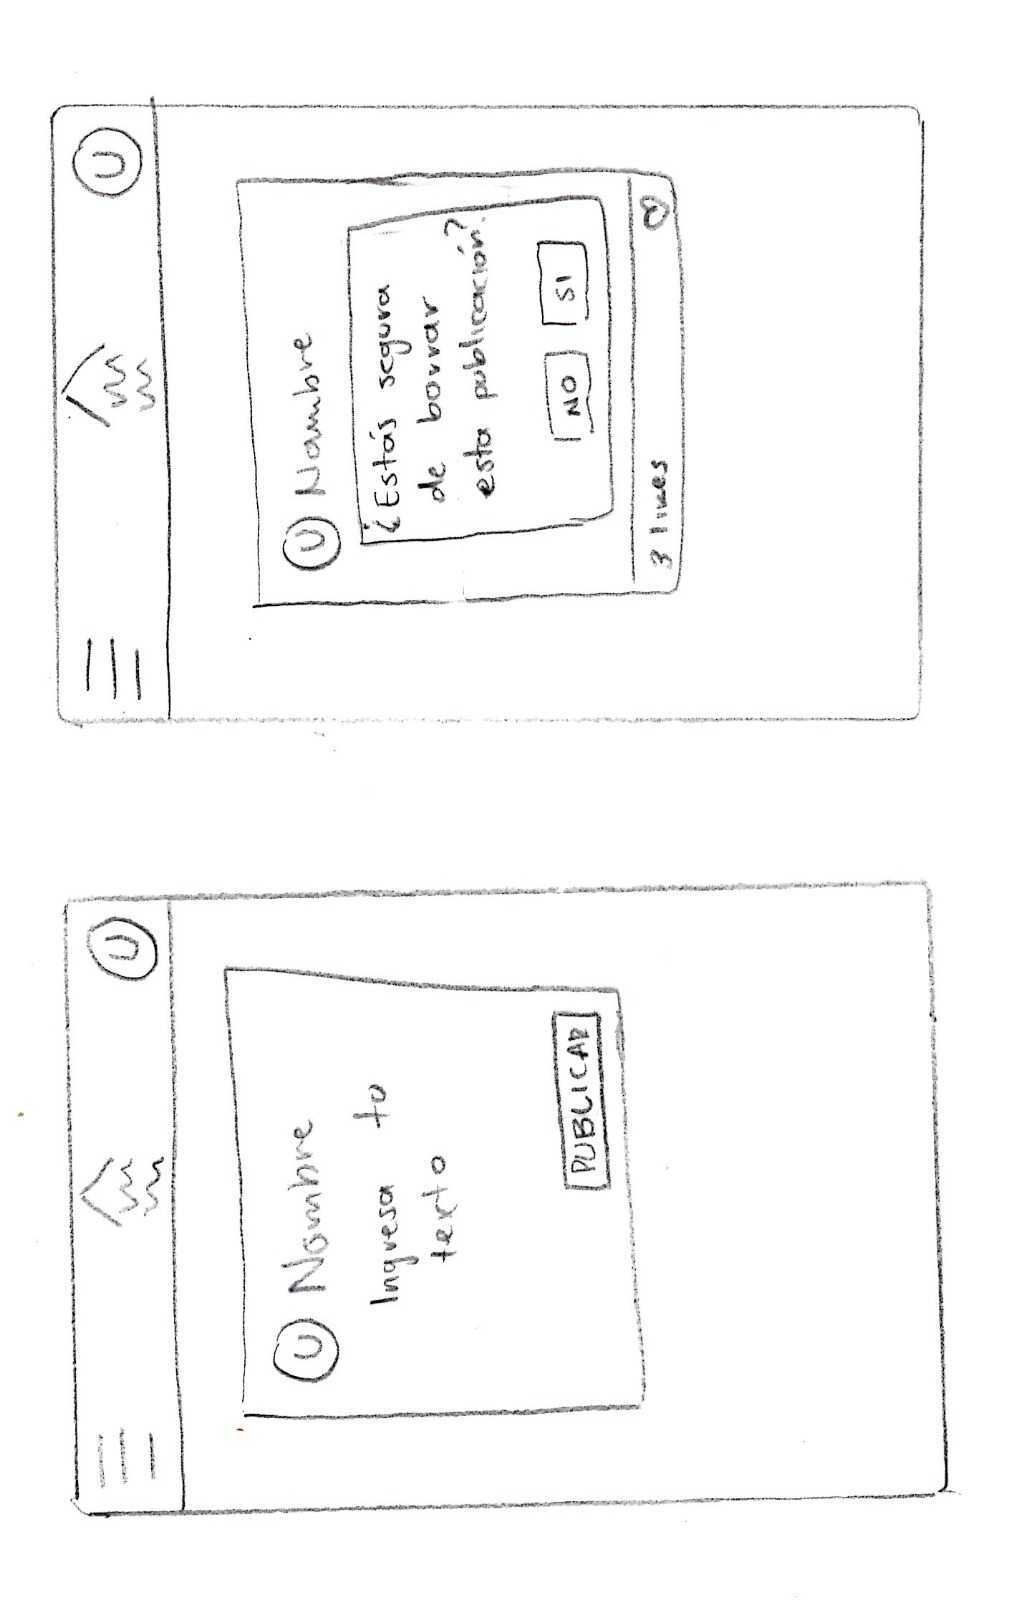 U
U Nombre
Ingresa tu
texto
PUBLICAR
U
U Nombre
¿Estás segura
de borrar
esta publicación?
NO SI
3 likes